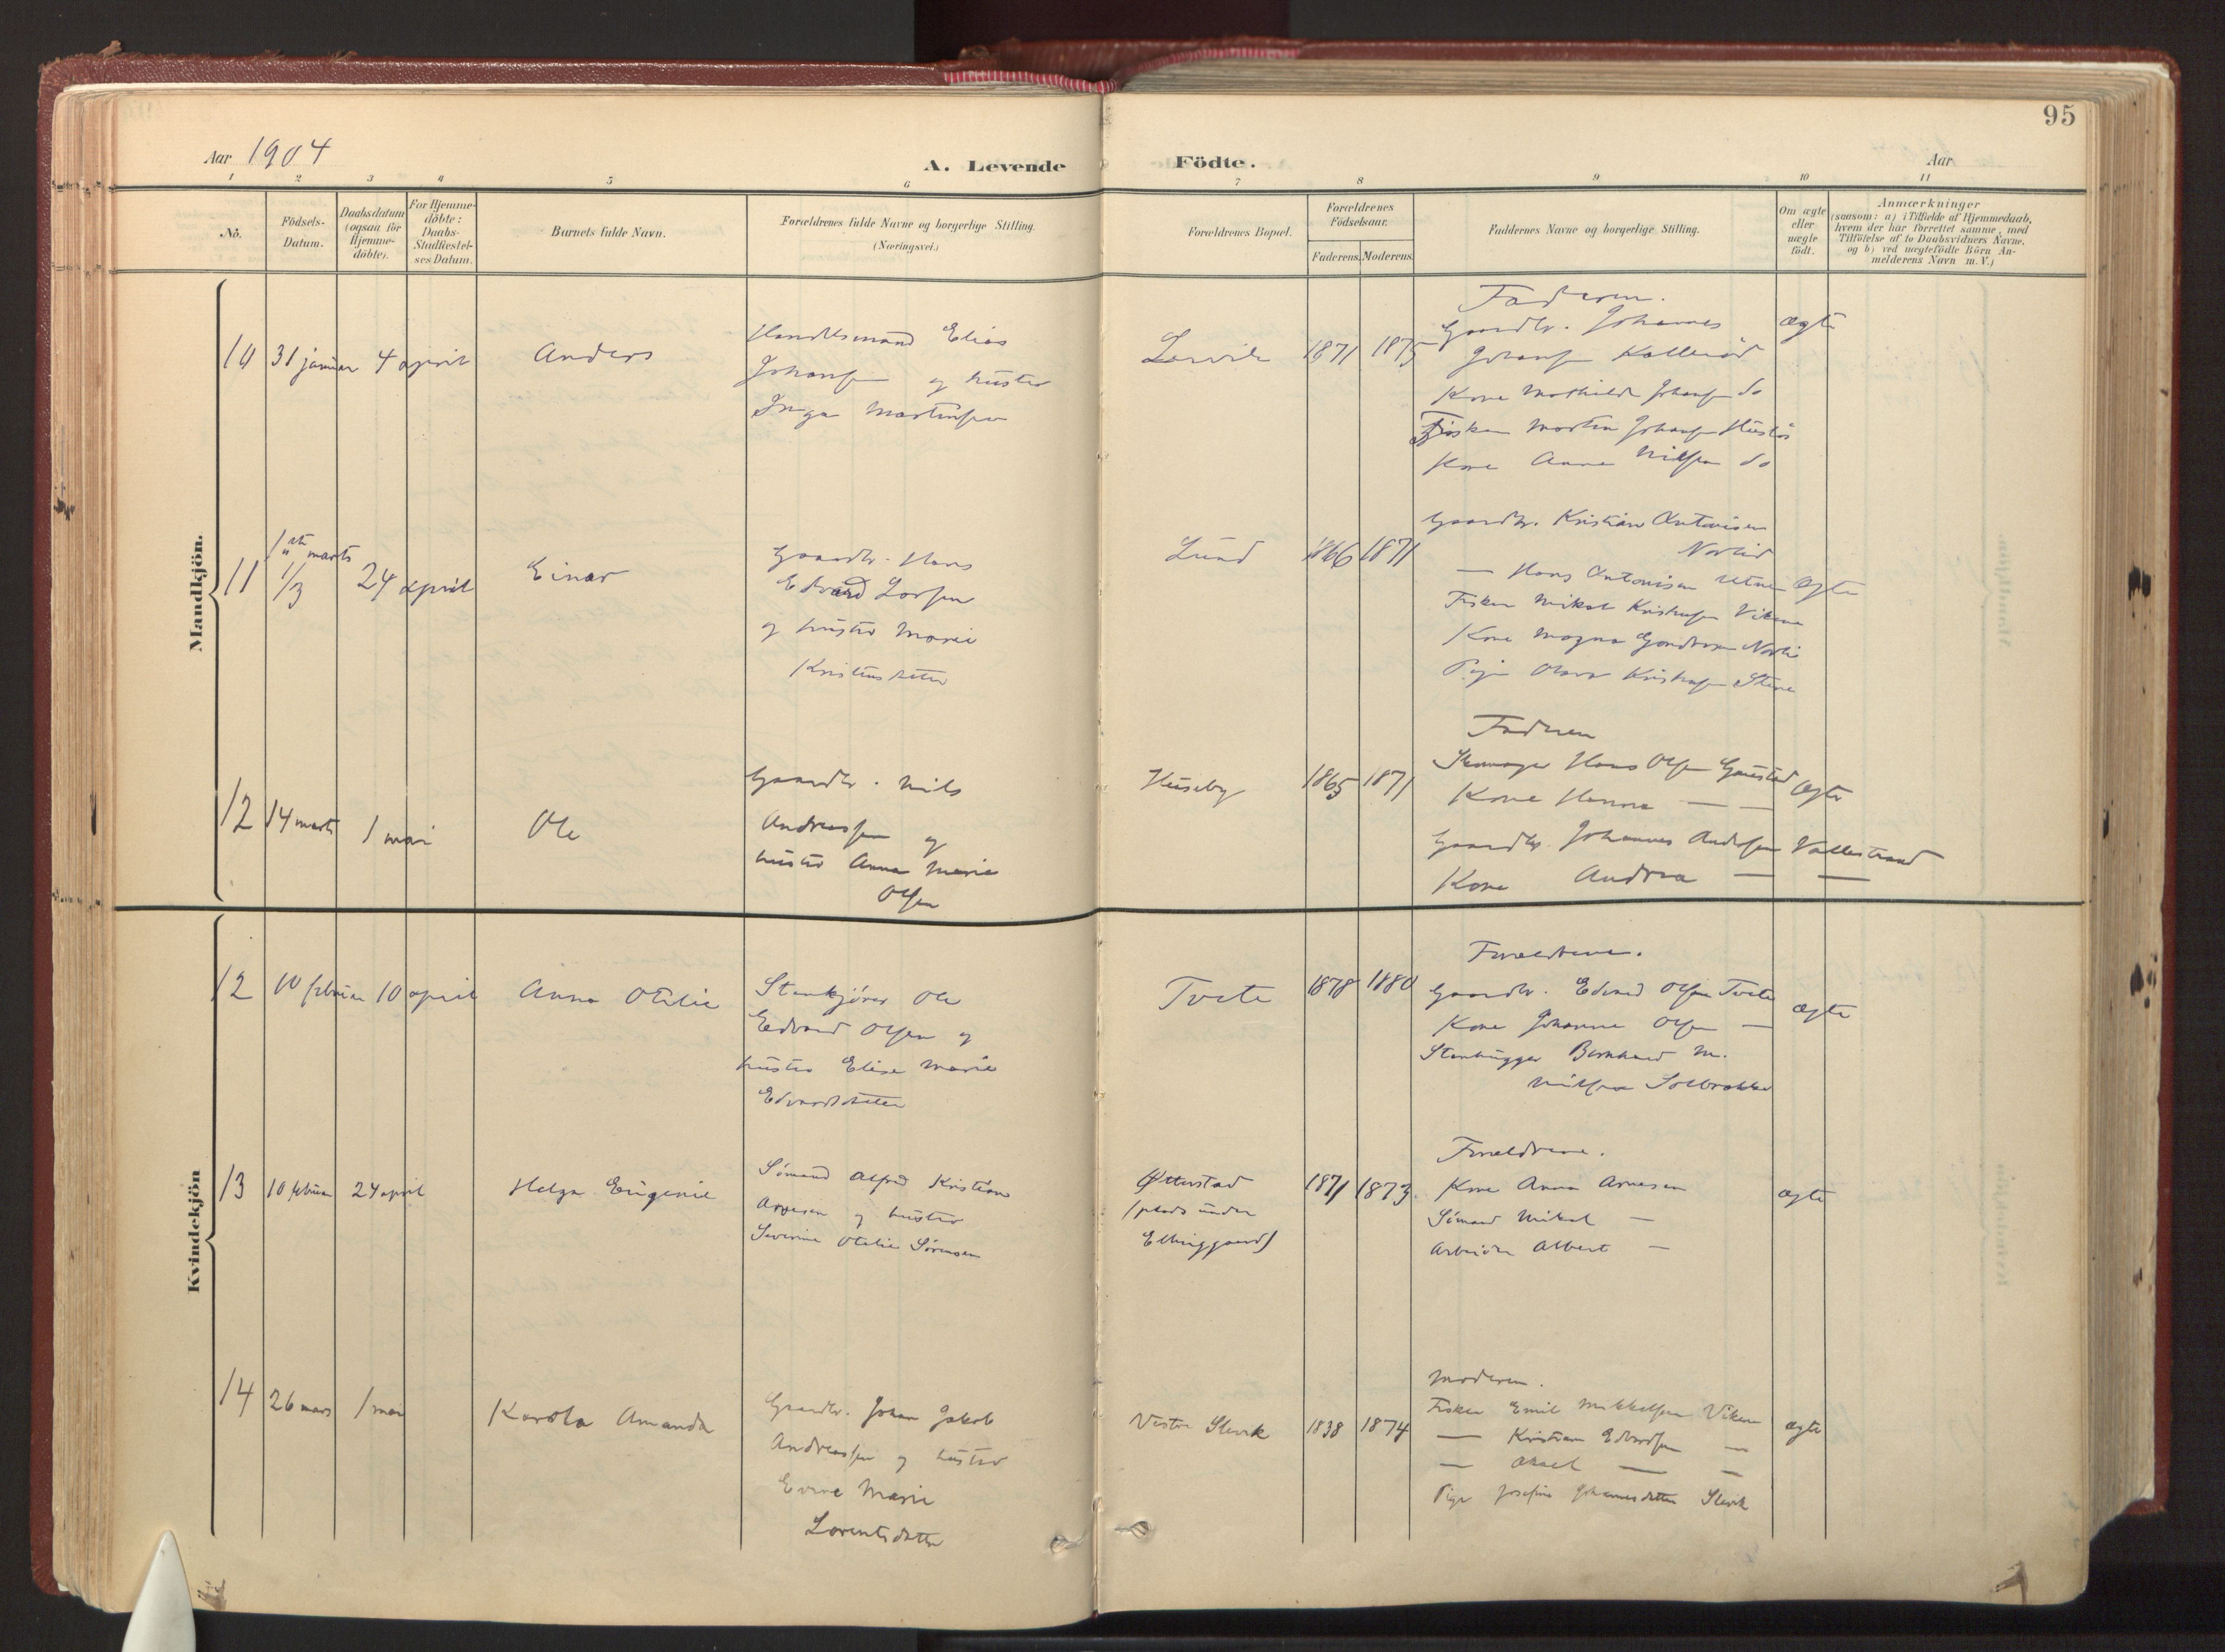 95
Aar 1904
A. Levende Födte.
Aar
1 2 3 4 5 6 7 8 9 10 11
Nö.
Födsels-
Datum.
Daabsdatum
(ogsaa för
Hjemme-
döbte).
For Hjemme-
döbte:
Daabs-
Stadfæstel-
ses Datum.
Barnets fulde Navn.
Forældrenes fulde Navne og borgerlige Stilling.
(Næringsvei.)
Forældrenes Bopæl.
Forældrenes
Födselsaar.
Faderens. Moderens.
Faddernes Navne og borgerlige Stilling.
Om ægte
eller
uægte
födt.
Anmærkninger
(saasom: a) i Tilfælde af Hjemmedaab,
hvem der har forrettet samme, med
Tilföielse af to Daabsvidners Navne,
og b) ved uægtefödte Börn An-
melderens Navn m. V.)
Mandkjön.
10 31 januar 4 april Anders
Handelsmand Elias
Johansen og hustru
Inga Martinsen
Lervik 1871 1875
Faderen.
Gaardbr. Johannes
Johansen Kallerød
Kone Mathilde Johansen do
Fisker Martin Johansen
Kone Anna Nilsen do
ægte
11 1ste marts
1/3
24 april Einar
Gaardbr. Hans
Edvard Larsen
og hustru Marie
Kristensdatter
Lund 1866 1871
Gaardbr. Kristian Antonisen
Norlid
— Hans Antonisen Utne
Fisker Mikal Kristiansen Vikane
Kone Magna Norli
Pige Olava Kristiansen Stene
Ægte
12 14 marts 1 mai Ole
Gaardbr. Nils
Andreassen og
hustru Anna Marie
Olsen
Huseby 1865 1871
Faderen
Skomager Hans Olsen Gaustad
Kone Hanna — —
Gaardbr. Johannes Andersen Vallestrand
Kone Andrea — —
Ægte
Kvindekjön
12 10 februar 10 april Anna Otilie
Stenkjører Ole
Edvard Olsen og
hustru Elise Marie
Edvardsdatter
Tvete 1878 1880
Forældrene.
Gaardbr. Edvard Olsen Tvete
Kone Johanne Olsen —
Stenhugger Bernhard M.
Nilsen Solbrække
ægte
13 10 februar 24 april Helga Eugenie
Sömand Alfred Kristian
Arnesen og hustru
Severine Otelie Sörensen
Ötterstad
(plads under
Elinggaard)
1871 1873
Forældrene.
Kone Anna Arnesen
Sömand Mikal —
Arbeider Albert —
ægte
14 26 mars 1 mai Karola Amanda
Gaardbr. Johan Jakob
Andreassen og hustru
Evine Marie
Lorentsdatter
Vestre Slevik 1838 1874
Moderen.
Fisker Emil Mikkelsen Vikane
— Kristian Edvardsen —
— Aksel — —
Pige Josefine Johannesdatter Slevik
ægte